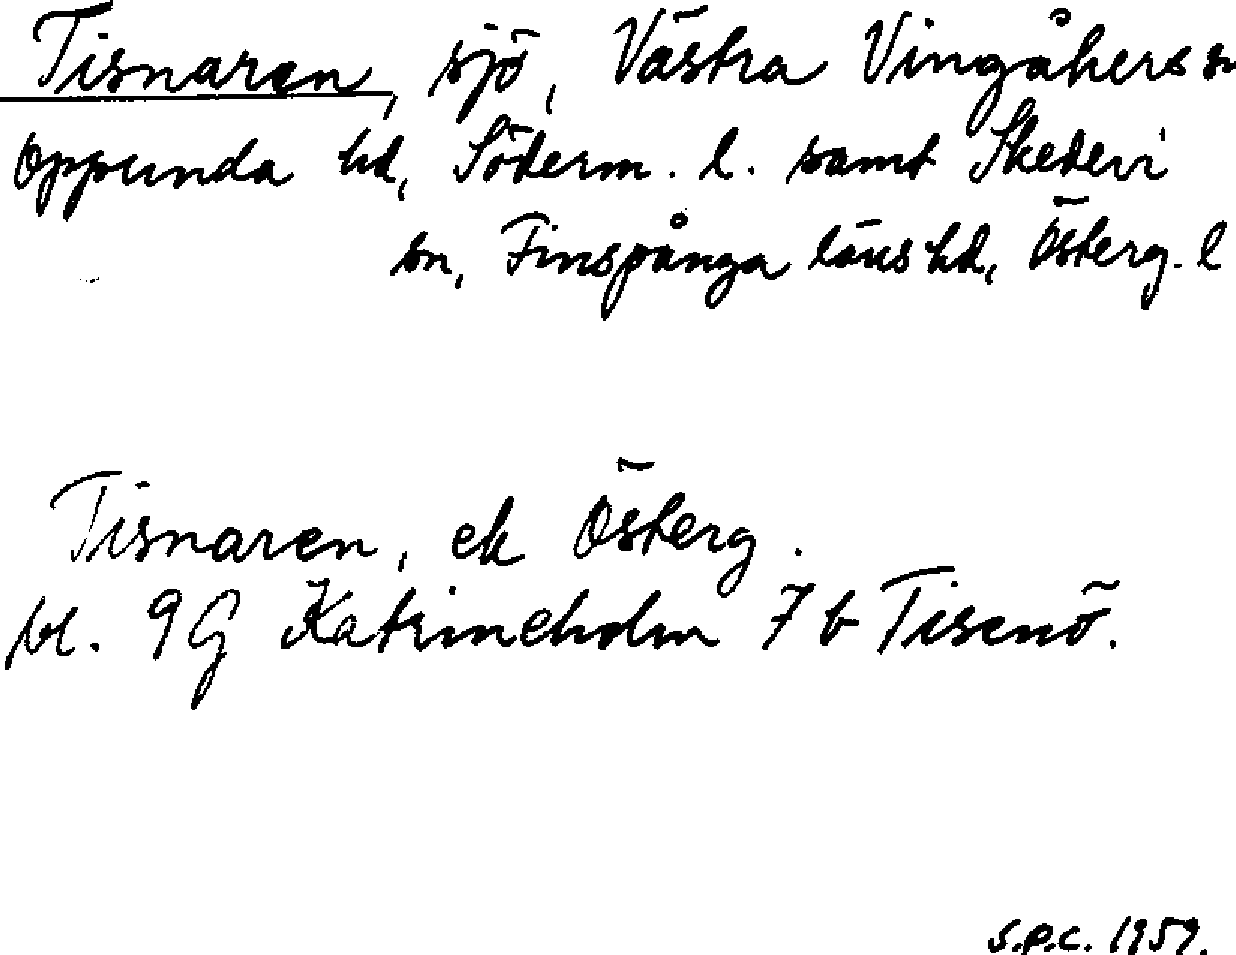 Tisnaren, sjö, Västra Vingåkers sn
Oppunda hd, Söderm. l. samt Skedevi
sn, Finspånga läns hd, Österg. l
Tisnaren, ek Österg.
bl. 9G Katrineholm 7 b Tisenö.
s.p.c. 1959.